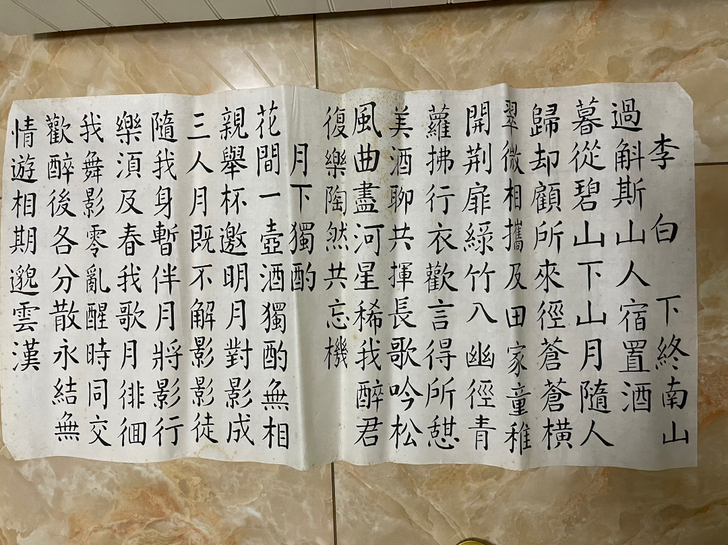 李白 下終南山
過斛斯山人宿置酒
暮從碧山下山月隨人
歸却顧所來徑蒼蒼橫
翠微相攜及田家童稚
開荆扉綠竹入幽徑青
蘿拂行衣歡言得所憇
美酒聊共揮長歌吟松
風曲盡河星稀我醉君
復樂陶然共忘機
月下獨酌
花間一壺酒獨酌無相
親舉杯邀明月對影成
三人月既不解影影徒
隨我身暫伴月將影行
樂湏及春我歌月徘徊
我舞影零亂醒時同交
歡醉後各分散永結無
情遊相期邈雲漢